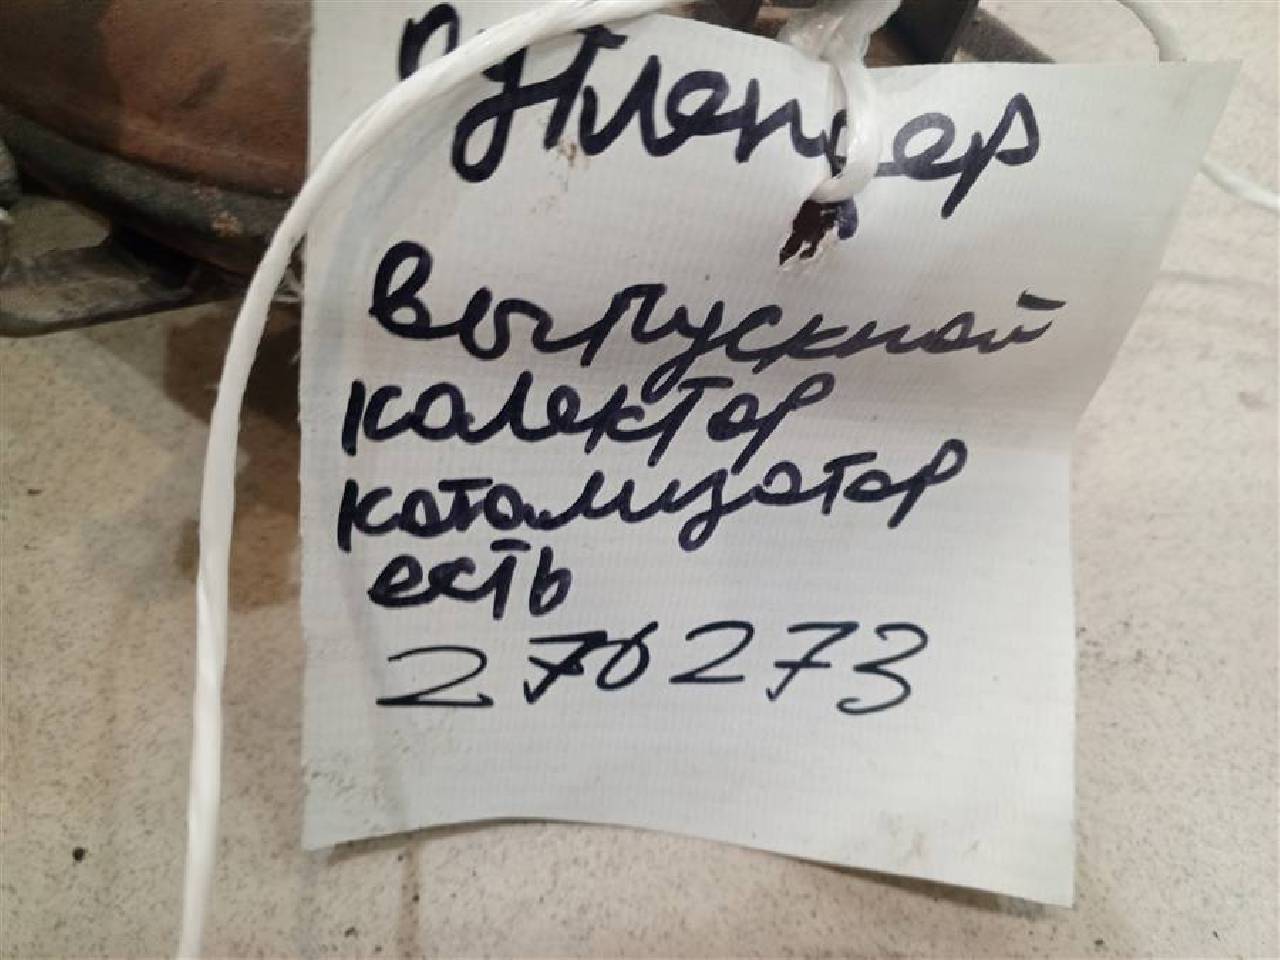 аутлендер
выпускной
колектор
котолизотор
есть
270273